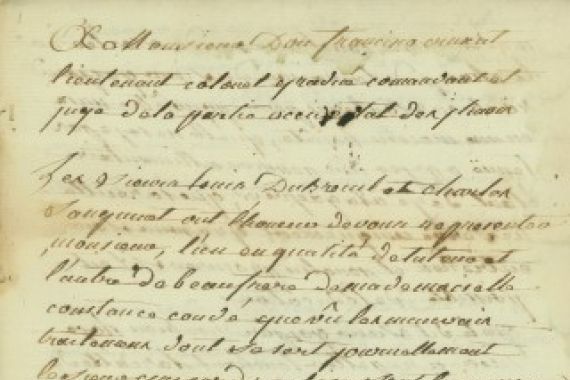 A Monsieur Don francisco cruzat
lieutenant colonel gradué comandant et
juge de la partie occidental des illinois
Les sieurs louis Dubreuil et charles
Sanguinet ont l'honneur de vous representer
monsieur, l'un en qualité de tuteur et
l'autre de beaufrere de mademoiselle
constance condé que vû les mauvais
traitemens dont se sert journellement
le sieur